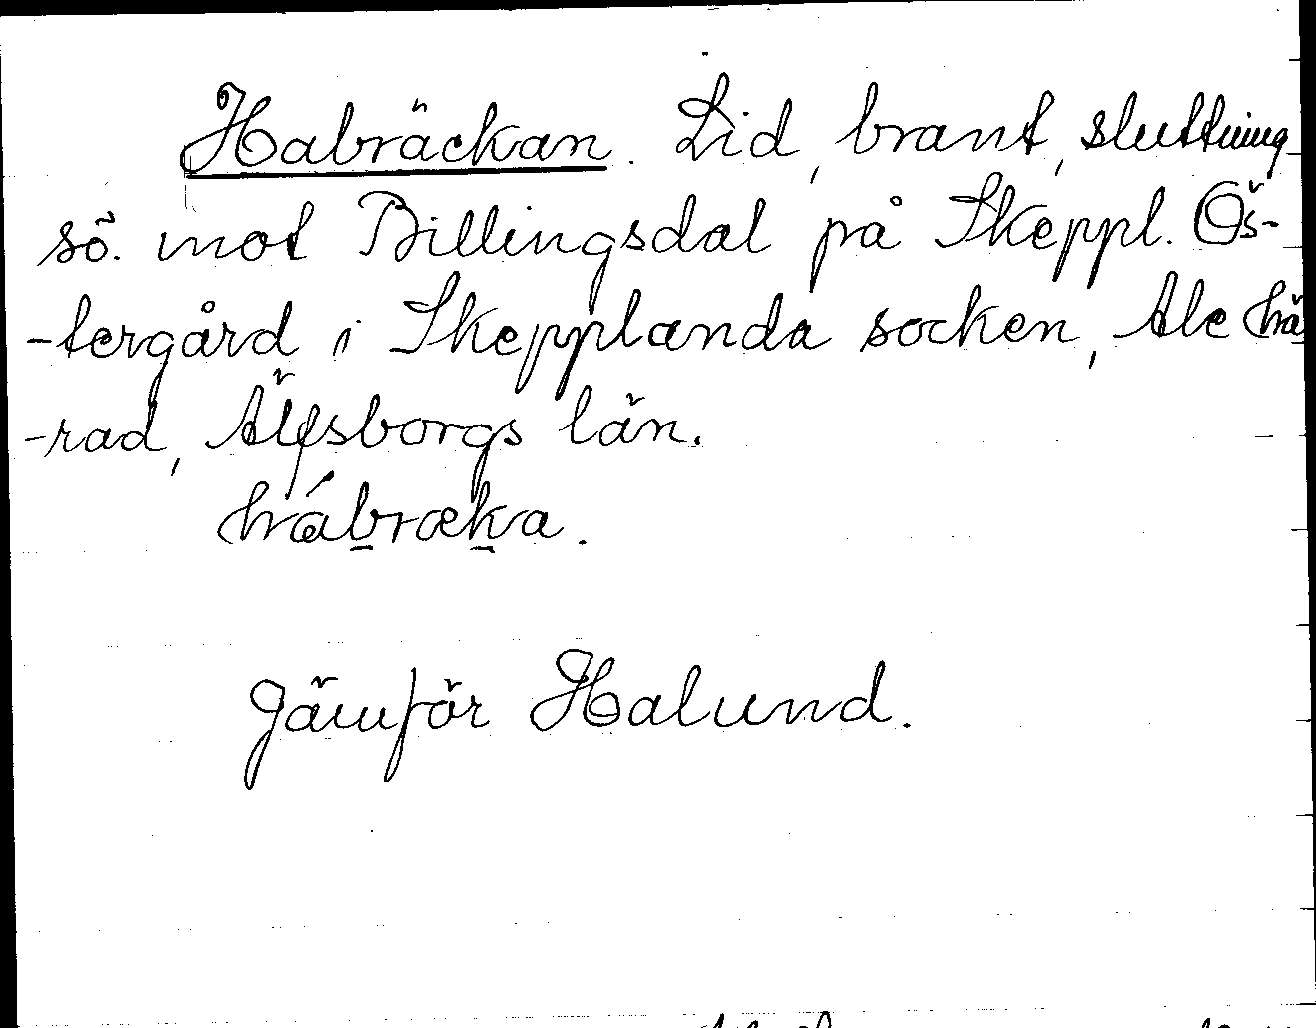 Habräckan. Lid, brant, sluttning
sö. mot Billingsdal på Skeppl. Ös-
-tergård i Skepplanda socken, Ale hä
-rad, Älfsborgs län.
hábræka.
Jämför Halund.